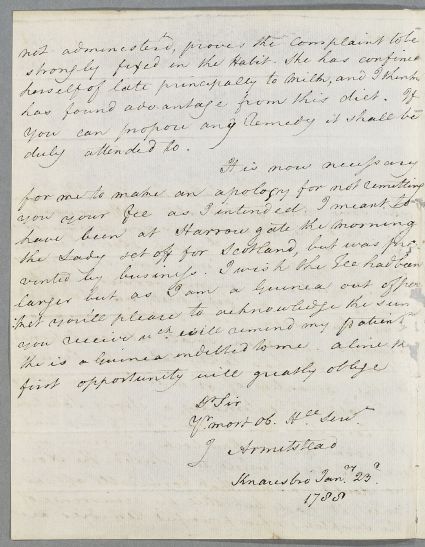 not administer'd, proves the Complaint to be
strongly fixed in the Habit. She has confined
herself of late principally to milk, and I think
has found advantage from this diet. If
you can propose any Remedy it shall be
duly attended to.
It is now necessary
for me to make an apology for not remitting
you your Fee as I intended. I meant to
have been at Harrowgate the morning
the Lady set off for Scotland, but was pre
vented by business. I wish the Fee had been
larger but as I am a Guinea out of poc
ket you'll please to acknowledge the sum
you receive wch will remind my patient
she is a Guinea indebted to me. a line pr
first opportunity will greatly oblige
Dr Sir
Yr most ob. Hle Servt
J Armitstead
Knaresbro Jany 23d
1788